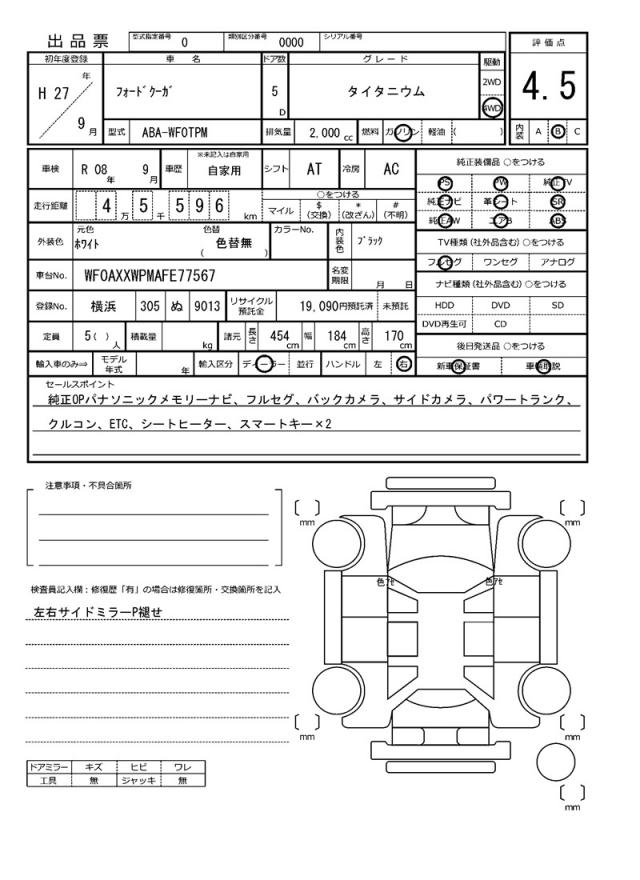 出品票
型式指定番号 0 類別区分番号 0000 シリアル番号
評価点
4.5
初年度登録 車名 ドア数 グレード 駆動
H 27 年 9 月
ﾌｫｰﾄﾞｸｰｶﾞ
5 D
タイタニウム
2WD
4WD
型式 ABA-WF0TPM 排気量 2,000 cc 燃料 ガソリン 軽油 ( )
内装 A B C
車検 R 08 年 9 月 車歴 ※未記入は自家用 自家用 シフト AT 冷房 AC
純正装備品 ○をつける
PS PW 純正TV
純正ナビ 革シート SR
純正AW エアB ABS
走行距離 4 万 5 千 5 9 6 km
○をつける
マイル $(交換) *(改ざん) #(不明)
TV種類(社外品含む)○をつける
フルセグ ワンセグ アナログ
外装色 元色 ﾎﾜｲﾄ 色替 ( 色替無 ) カラーNo. 内装色 ﾌﾞﾗｯｸ
車台No. WF0AXXWPMAFE77567 名変期限 月 日
ナビ種類(社外品含む)○をつける
HDD DVD SD
DVD再生可 CD
登録No. 横浜 305 ぬ 9013 リサイクル預託金 19,090円預託済 未預託
定員 5( ) 人 積載量 kg 諸元 長さ 454 cm 幅 184 cm 高さ 170 cm
後日発送品 ○をつける
新車保証書 車輌取説
輸入車のみ⇒ モデル年式 年 輸入区分 ディーラー 並行 ハンドル 左 右
セールスポイント
純正OPパナソニックメモリーナビ、フルセグ、バックカメラ、サイドカメラ、パワートランク、
クルコン、ETC、シートヒーター、スマートキー×2
注意事項・不具合箇所
検査員記入欄：修復歴「有」の場合は修復箇所・交換箇所を記入
左右サイドミラーP褪せ
mm
mm
色ｱｾ 色ｱｾ
mm
mm
mm
ドアミラー キズ ヒビ ワレ
工具 無 ジャッキ 無